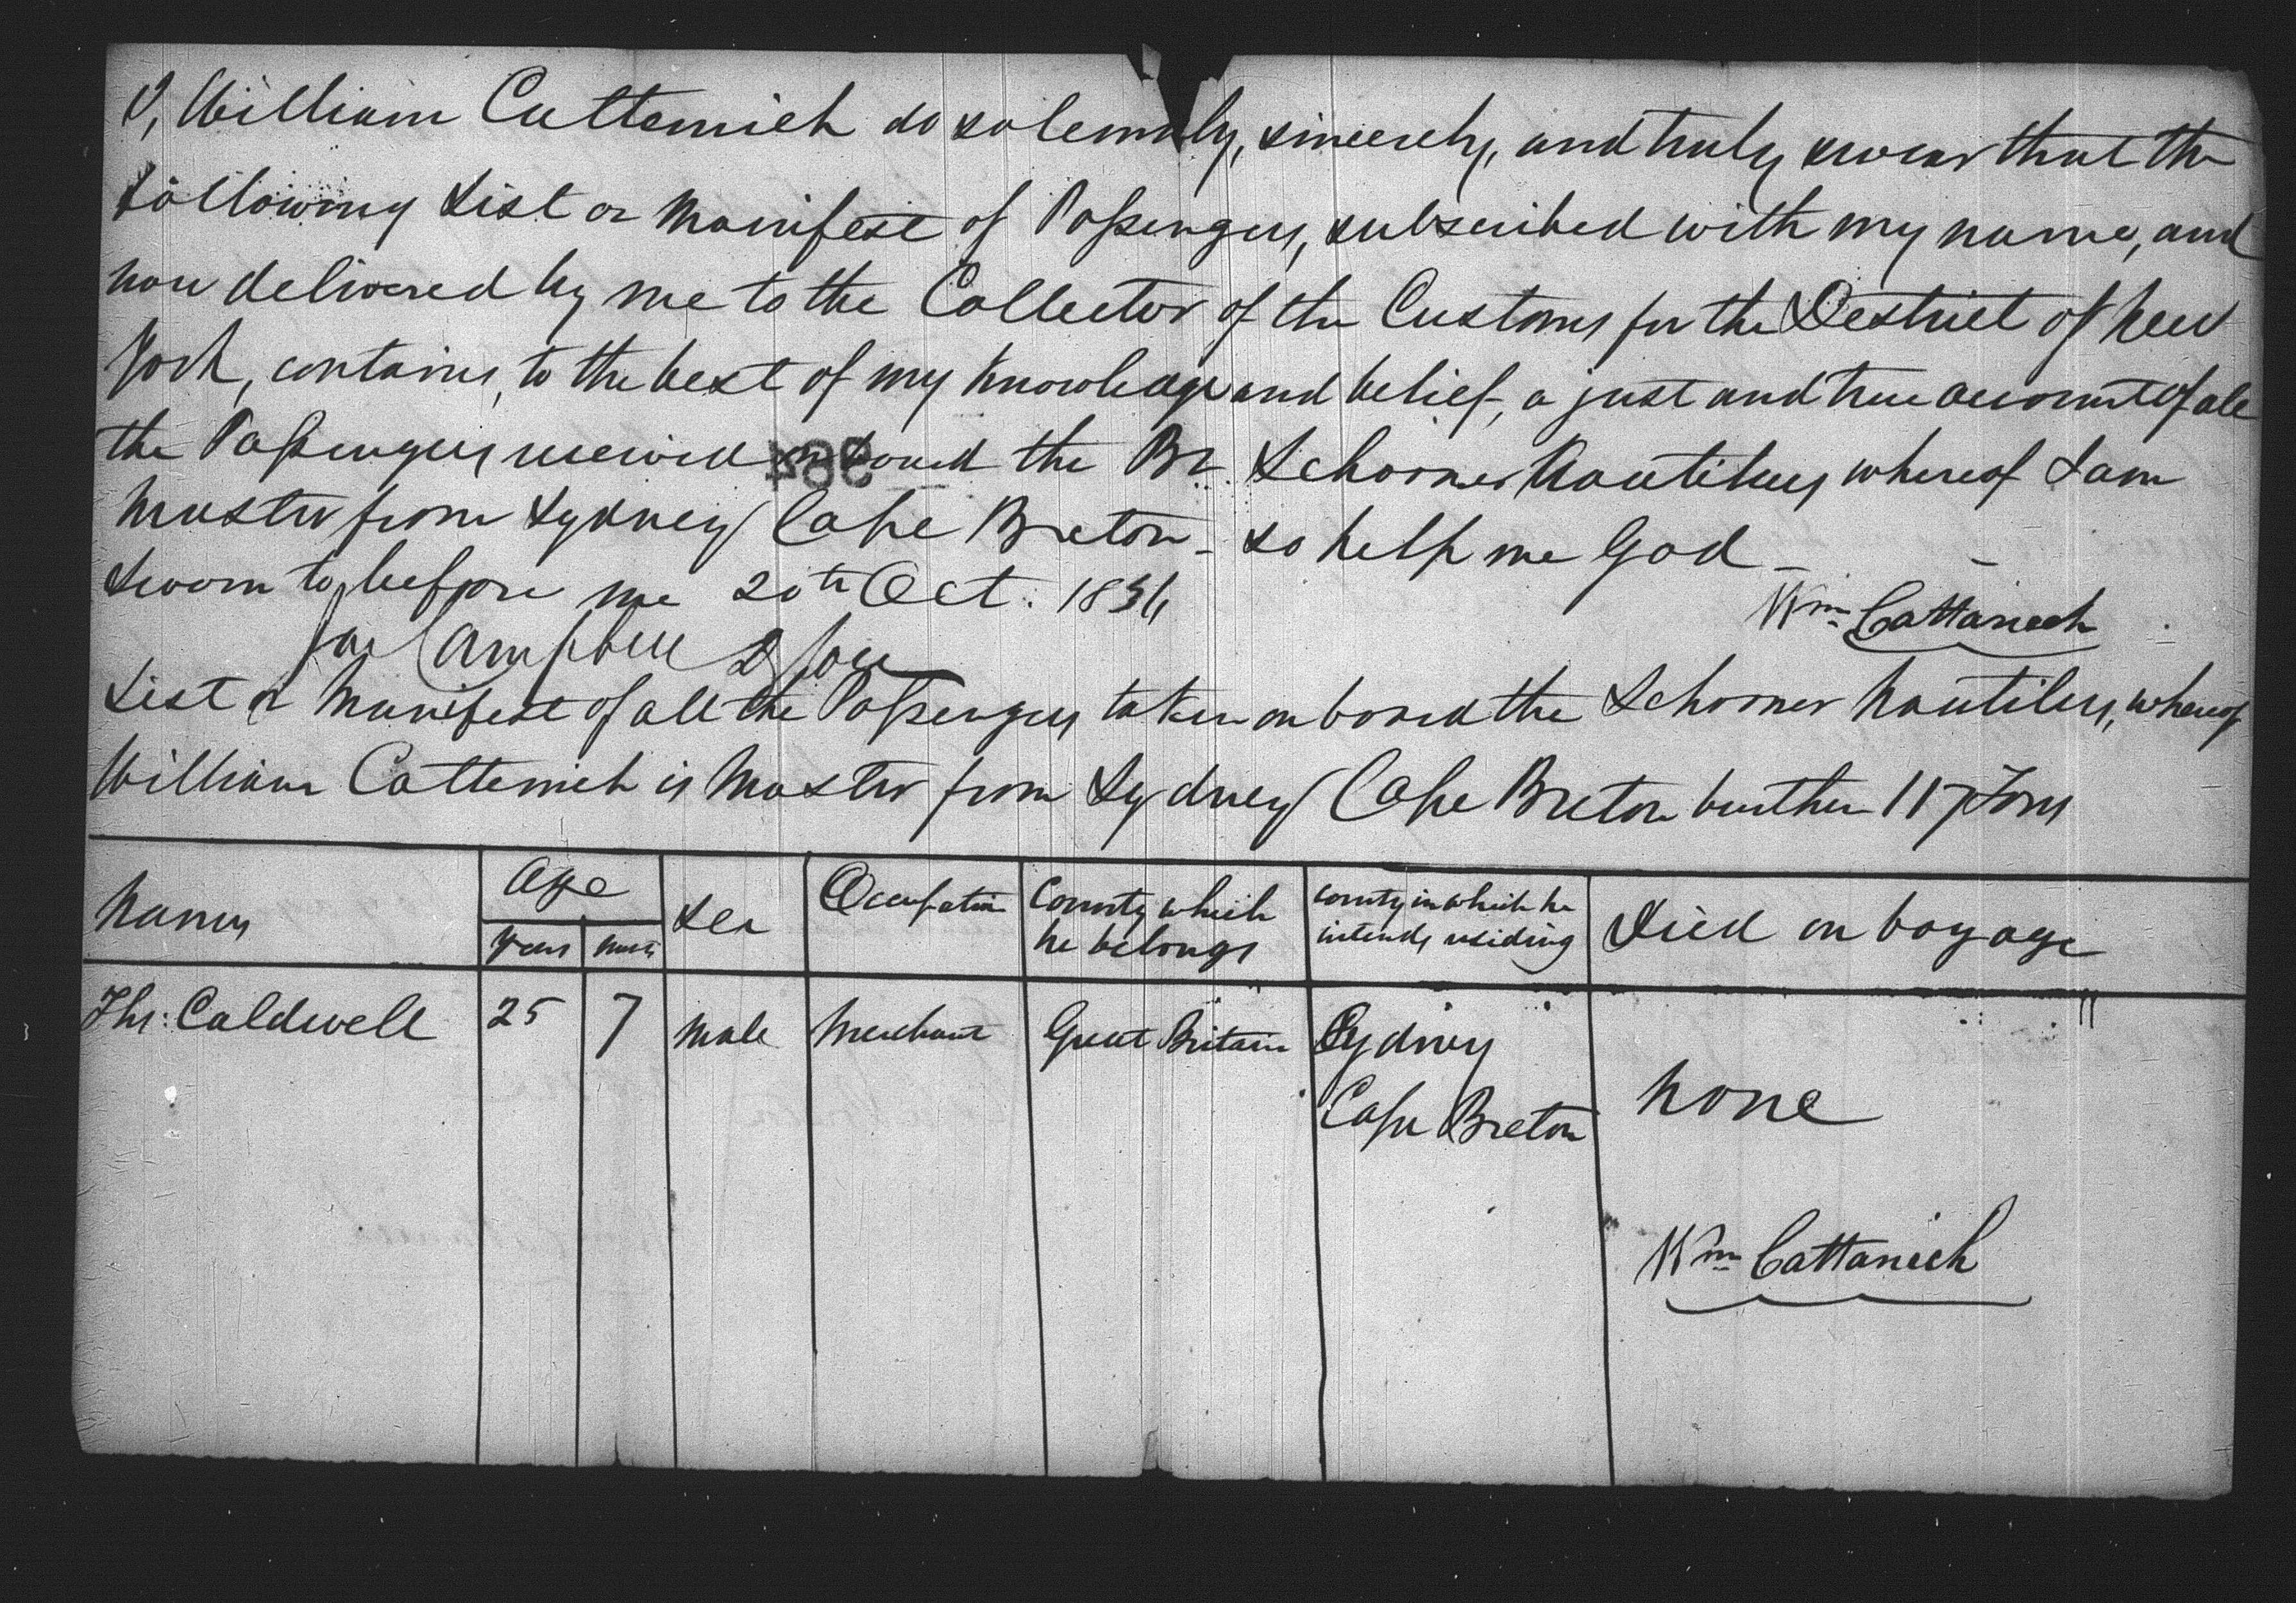 I, William Cattenich do solemnly, sincerely, and truly swear that the
following List or Manifest of Passengers, subscribed with my name, and
now delivered by me to the Collector of the Customs for the District of New
York, contains, to the best of my knowledge and belief, a just and true account of all
the Passengers received on board the Br. Schooner Nautilus whereof I am
Master from Sydney Cape Breton - so help me God -
Sworn to before me 20th Oct. 1834
Wm Cattanich
Campbell
List or Manifest of all the Passengers taken on board the Schooner Nautilus, whereof
William Cattenich is Master from Sydney Cape Breton burthen 117 Tons
Names
Age
Years
Sex
Occupation
Country which
he belongs
country in which he
intends residing
Died on voyage
Ths: Caldwell 25 7 Male Merchant Great Britain Sydney
Cape Breton
none
Wm Cattanich